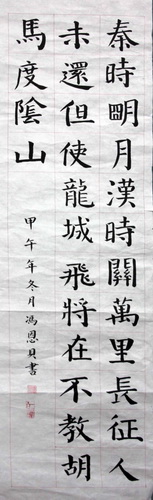 秦時明月漢時關萬里長征人
未還但使龍城飛將在不教胡
馬度陰山
甲午年冬月馮恩貝書